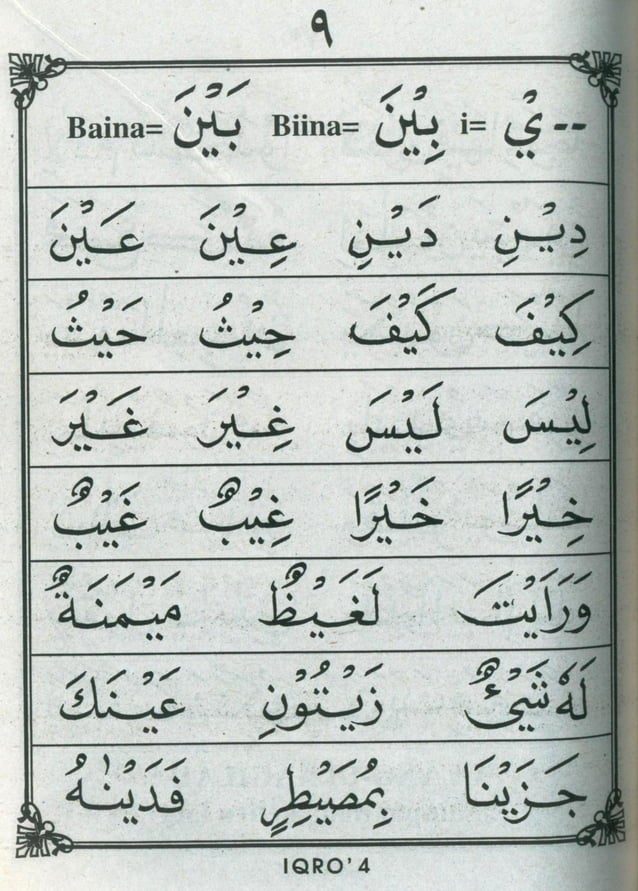 ٩
-- يْ i= بِيْنَ Biina= بَيْنَ Baina=
دِيْنِ دَيْنِ عِيْنَ عَيْنَ
كِيْفَ كَيْفَ حِيْثُ حَيْثُ
لِيْسَ لَيْسَ غِيْرَ غَيْرَ
خِيْرًا خَيْرًا غِيْبٌ غَيْبٌ
وَرَاَيْتَ لَغَيْظٌ مَيْمَنَةٌ
لَهٗ شَيْئٌ زَيْتُوْنِ عَيْنَكَ
جَزَيْنَا بِمُصَيْطِرٍ فَدَيْنٰهُ
IQRO' 4